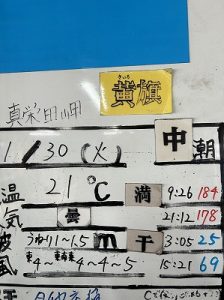 きいろ
黄旗
真栄田岬
1/30(火) 中潮
温 21℃ 満 9:26 184
気 曇 21:12 178
波 うねり1~1.5m 干 3:05 25
風 東4~東南東4~4~5 15:21 69